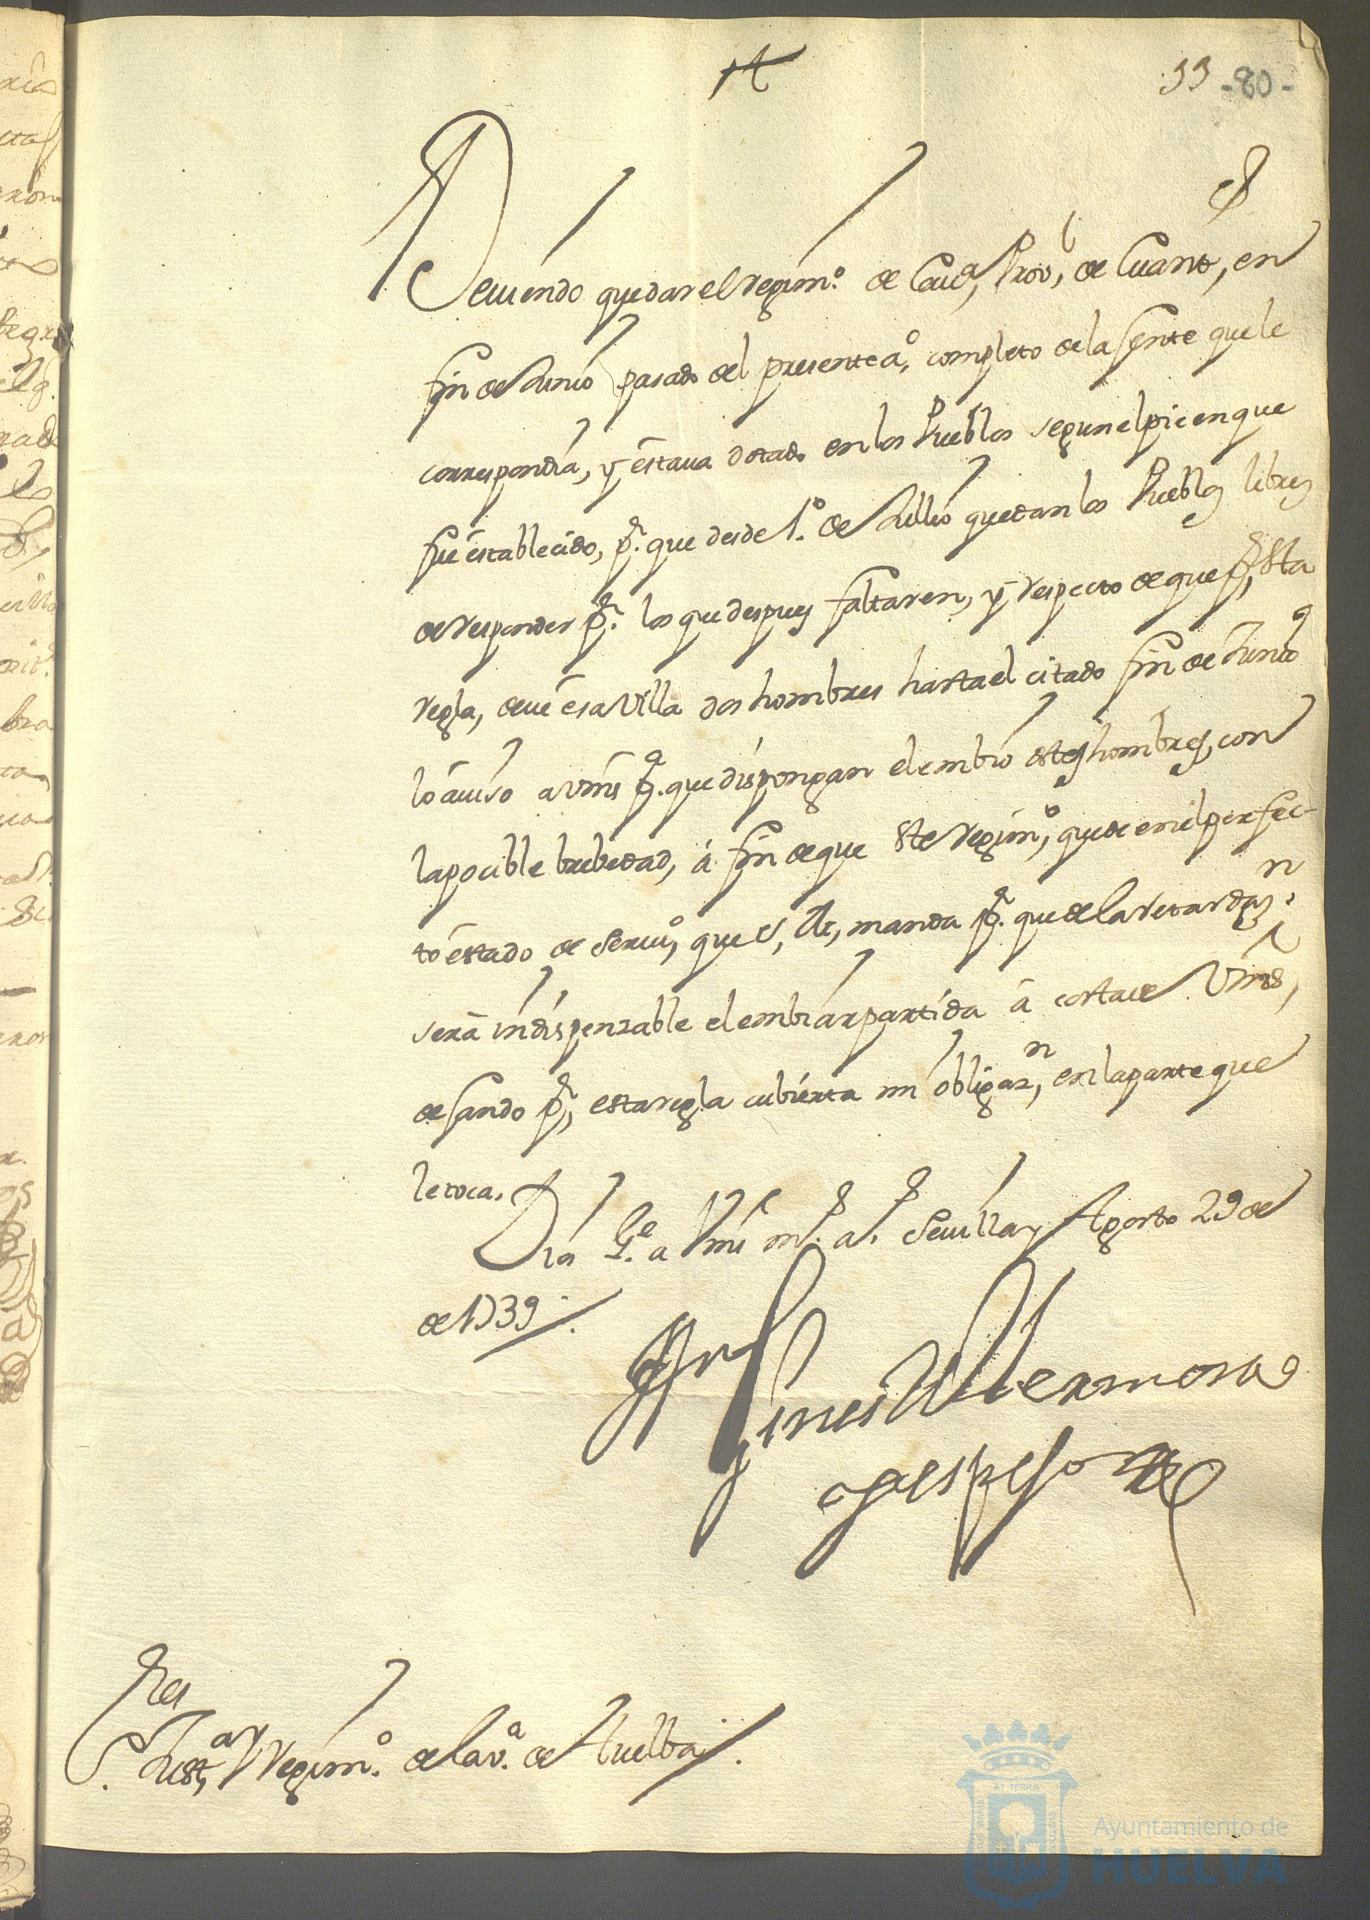 33 -80-
Deuiendo quedar el regim.º de Cau.ª Prov.l de Quant, en
fin de Junio pasado del presente a.º, completo de la Gente que le
correspondia, y estaua dotado en los Pueblos segun el pie en que
fue establecido, p.r que desde 1.º de Jullio quedan los Pueblos libres
de responder p.r los que despues faltaren, y respecto de que p.r esta
regla, deue esa Villa dos hombres hasta el citado fin de Junio
lo auiso a Vms p.ª que dispongan el embio estos hombres, con
la pocible brebedad, á fin de que este regim.º, quede en el perfec-
to estado de seruiº, que S, M, manda p.r que de la retardaz.n
será indispenzable el embiar partida á costa de Vms,
dejando p.r esta regla cubierta mi obligaz.n, en la parte que
le toca.
Dios g.e a Vms m.s a.s Seuilla y Agosto 29 de
de 1739.
Gines de Hermosa
y espejo
S.res
Just.ª y regim.º de la v.ª de Huelba.
Ayuntamiento de
HUELVA